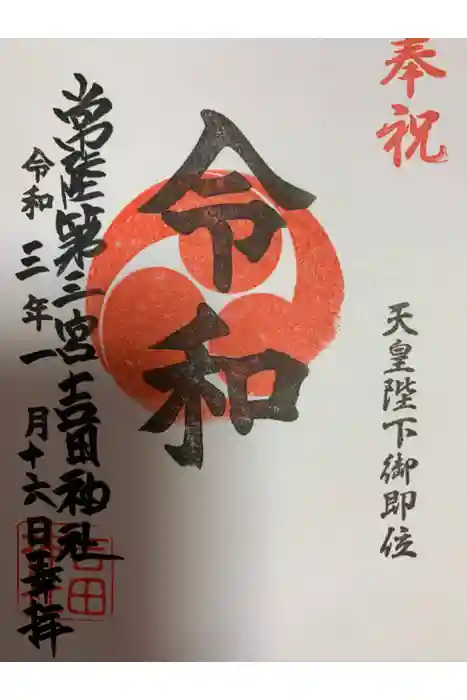 奉祝
天皇陛下御即位
令和
常陸第三宮吉田神社
令和三年一月十六日奉拝
吉田